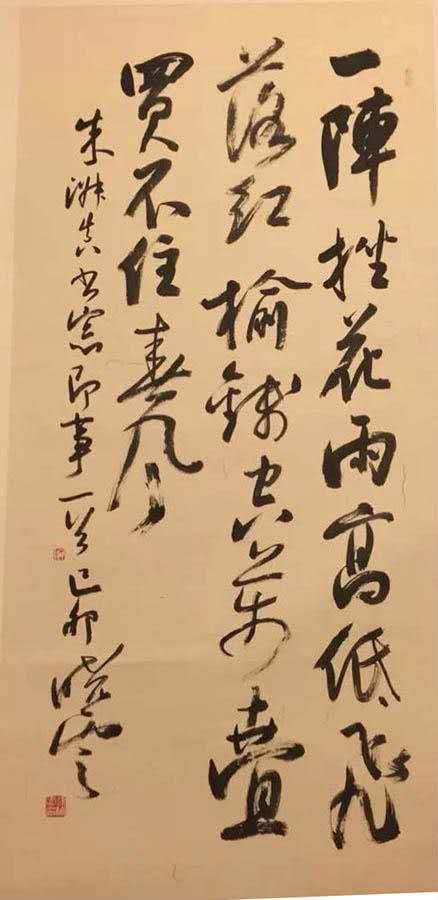 一陣挫花雨高低飛
落紅榆錢空萬疊
買不住春風
朱淑真書窗即事一首己卯曉雲